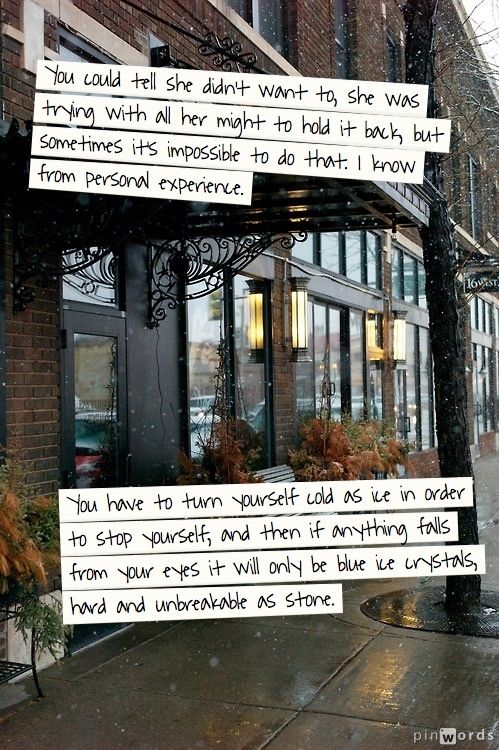 You could tell she didn't want to, she was
trying with all her might to hold it back, but
sometimes it's impossible to do that. I know
from personal experience.
You have to turn yourself cold as ice in order
to stop yourself, and then if anything falls
from your eyes it will only be blue ice crystals,
hard and unbreakable as stone.
pinwords